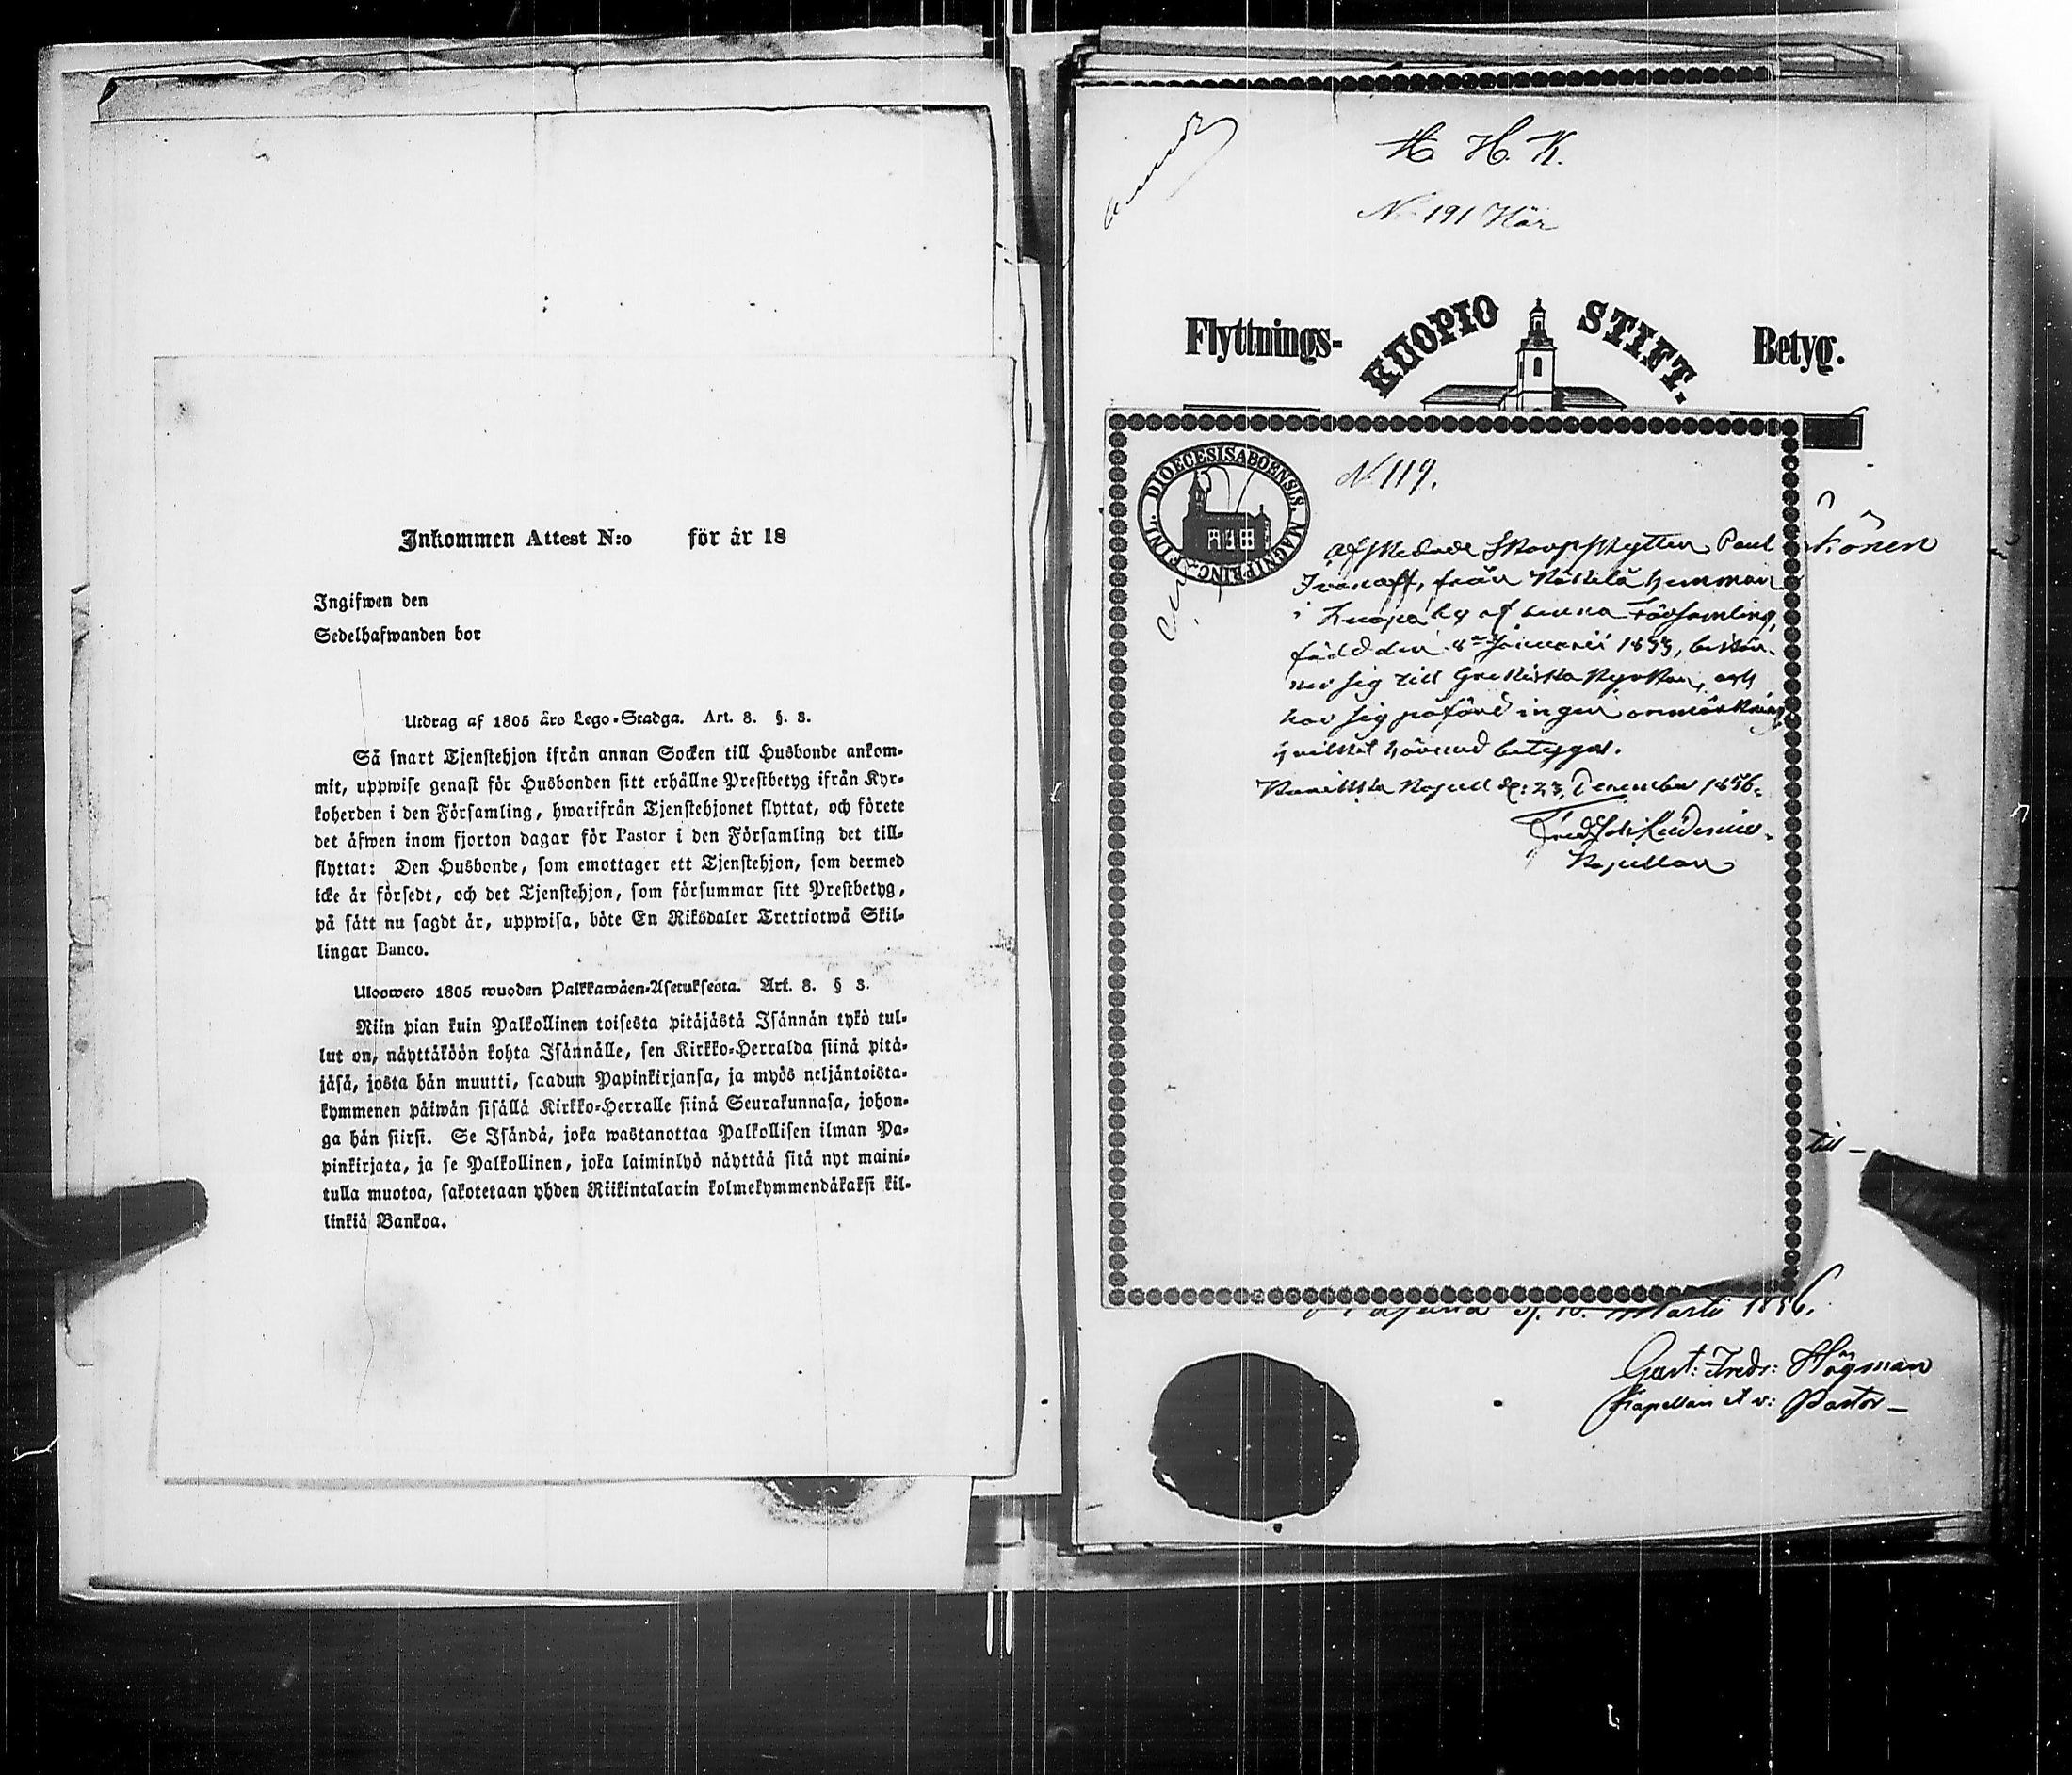 Inkommen Attest N:o för år 18
Ingifwen den
Sedelhafwanden bor
Utdrag af 1805 års Lego-Stadga. Art. 8. §. 3.
Så snart Tjenstehjon ifrån annan Socken till Husbonde ankom-
mit, uppwise genast för Husbonden sitt erhållne Prestbetyg ifrån Kyr-
koherden i den Församling, hwarifrån Tjenstehjonet flyttat, och förete
det äfwen inom fjorton dagar för Pastor i den Församling det till-
flyttat: Den Husbonde, som emottager ett Tjenstehjon, som dermed
icke är försedt, och det Tjenstehjon, som försummar sitt Prestbetyg,
på sätt nu sagdt är, uppwisa, böte En Riksdaler Trettiotwå Skil-
lingar Banco.
Ulosweto 1805 wuoden Palkkawäen-Asetuksesta. Art. 8. § 3.
Niin pian kuin Palkollinen toisesta pitäjästä Isännän tykö tul-
lut on, näyttäköön kohta Isännälle, sen Kirkko-Herralda siinä pitä-
jäsä, josta hän muutti, saadun Papinkirjansa, ja myös neljäntoista-
kymmenen päiwän sisällä Kirkko-Herralle siinä Seurakunnasa, johon-
ga hän siirsi. Se Isändä, joka wastanottaa Palkollisen ilman Pa-
pinkirjata, ja se Palkollinen, joka laiminlyö näyttää sitä nyt maini-
tulla muotoa, sakotetaan yhden Riikintalarin kolmekymmendäkaksi kil-
linkiä Bankoa.
H. K.
N 191 Här
Flyttnings- KUOPIO STIFT. Betyg.
DIOECESIS ABOENSIS MAGNI PRINC. FINL.
N 119.
Afskedade Skarpskytten Paul
Ivanoff, från hemman
i by af denna Församling,
född den 8de Januarii 1833, bekän-
ner sig till Grekiska Kyrkan, och
har sig påförd ingen anmärkning
hvilket härmed betygas.
Kapell d. 23 December 1856.
Kapellan
könen
till –
d. 10. Marti 1856.
Gust: Fredr: Högman
Kapellan et v: Pastor –